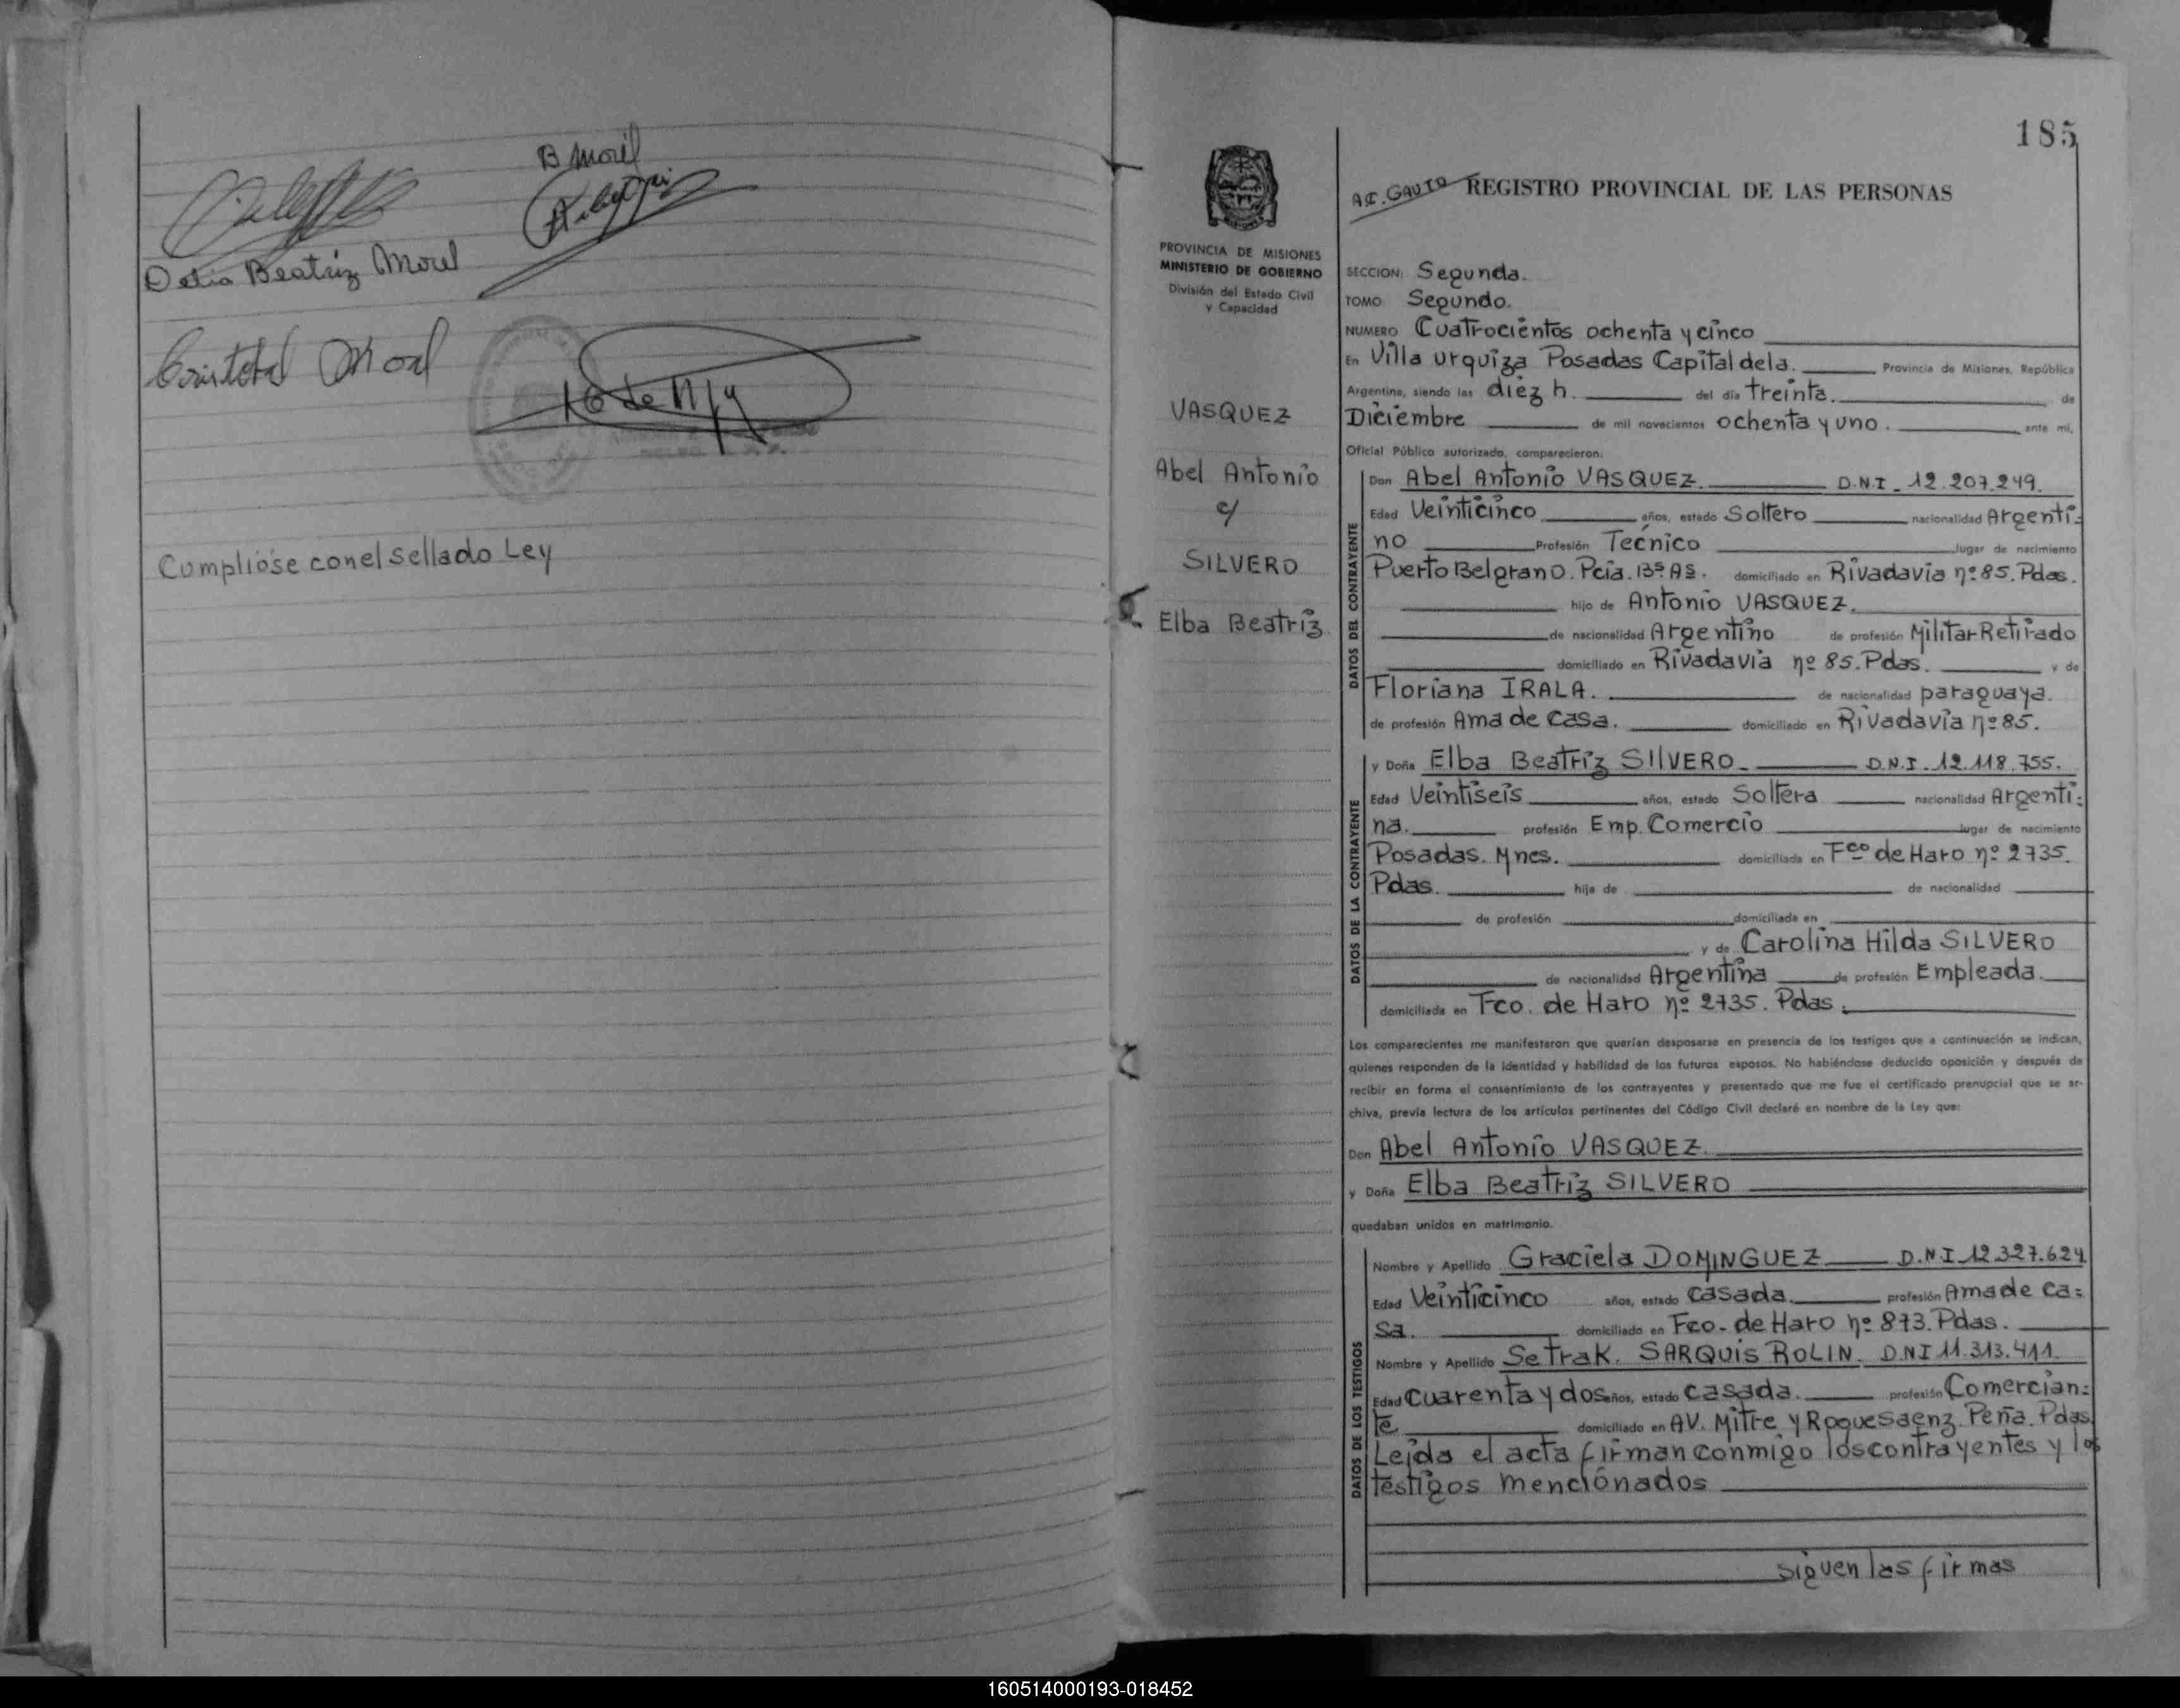 B Morel
Delia Beatriz Morel
16 de N/9
Cumplióse con el sellado Ley
185
AC. GAUTO REGISTRO PROVINCIAL DE LAS PERSONAS
PROVINCIA DE MISIONES
MINISTERIO DE GOBIERNO
División del Estado Civil
y Capacidad
VASQUEZ
Abel Antonio
c/
SILVERO
Elba Beatriz
SECCION: Segunda.
TOMO: Segundo.
NUMERO Cuatrocientos ochenta y cinco
En Villa Urquiza Posadas Capital de la. Provincia de Misiones, República
Argentina, siendo las diez h. del día treinta. de
Diciembre de mil novecientos ochenta y uno. ante mi,
Oficial Público autorizado, comparecieron:
DATOS DEL CONTRAYENTE
Don Abel Antonio VASQUEZ. D.N.I. 12.207.249.
Edad Veinticinco años, estado Soltero nacionalidad Argenti=
no Profesión Tecnico lugar de nacimiento
Puerto Belgrano. Pcia. Bs As. domiciliado en Rivadavia nº 85. Pdas.
hijo de Antonio VASQUEZ.
de nacionalidad Argentino de profesión Militar Retirado
domiciliado en Rivadavia nº 85. Pdas. y de
Floriana IRALA. de nacionalidad paraguaya.
de profesión Ama de Casa. domiciliado en Rivadavia nº 85.
DATOS DE LA CONTRAYENTE
y Doña Elba Beatriz SIlVERO. D.N.I. 12.118.755.
Edad Veintiseis años, estado Soltera nacionalidad Argenti=
na. profesión Emp. Comercio lugar de nacimiento
Posadas. Mnes. domiciliada en Fco de Haro nº 2735.
Pdas. hija de de nacionalidad
de profesión domiciliada en
y de Carolina Hilda SILVERO
de nacionalidad Argentina de profesión Empleada.
domiciliada en Fco. de Haro nº 2735. Pdas.
Los comparecientes me manifestaron que querían desposarse en presencia de los testigos que a continuación se indican,
quienes responden de la identidad y habilidad de los futuros esposos. No habiéndose deducido oposición y después de
recibir en forma el consentimiento de los contrayentes y presentado que me fue el certificado prenupcial que se ar-
chiva, previa lectura de los artículos pertinentes del Código Civil declaré en nombre de la Ley que:
Don Abel Antonio VASQUEZ.
y Doña Elba Beatriz SILVERO
quedaban unidos en matrimonio.
DATOS DE LOS TESTIGOS
Nombre y Apellido Graciela DOMINGUEZ D.N.I 12.327.624
Edad Veinticinco años, estado Casada. profesión Ama de ca=
sa. domiciliado en Fco. de Haro nº 873. Pdas.
Nombre y Apellido Setrak. SARQUIS ROLIN. D.N.I 11.313.411.
Edad Cuarenta y dos años, estado casada. profesión Comercian=
te domiciliado en AV. Mitre y Roque Saenz Peña. Pdas.
Leida el acta firman conmigo los contrayentes y los
testigos mencionados
siguen las firmas
160514000193-018452